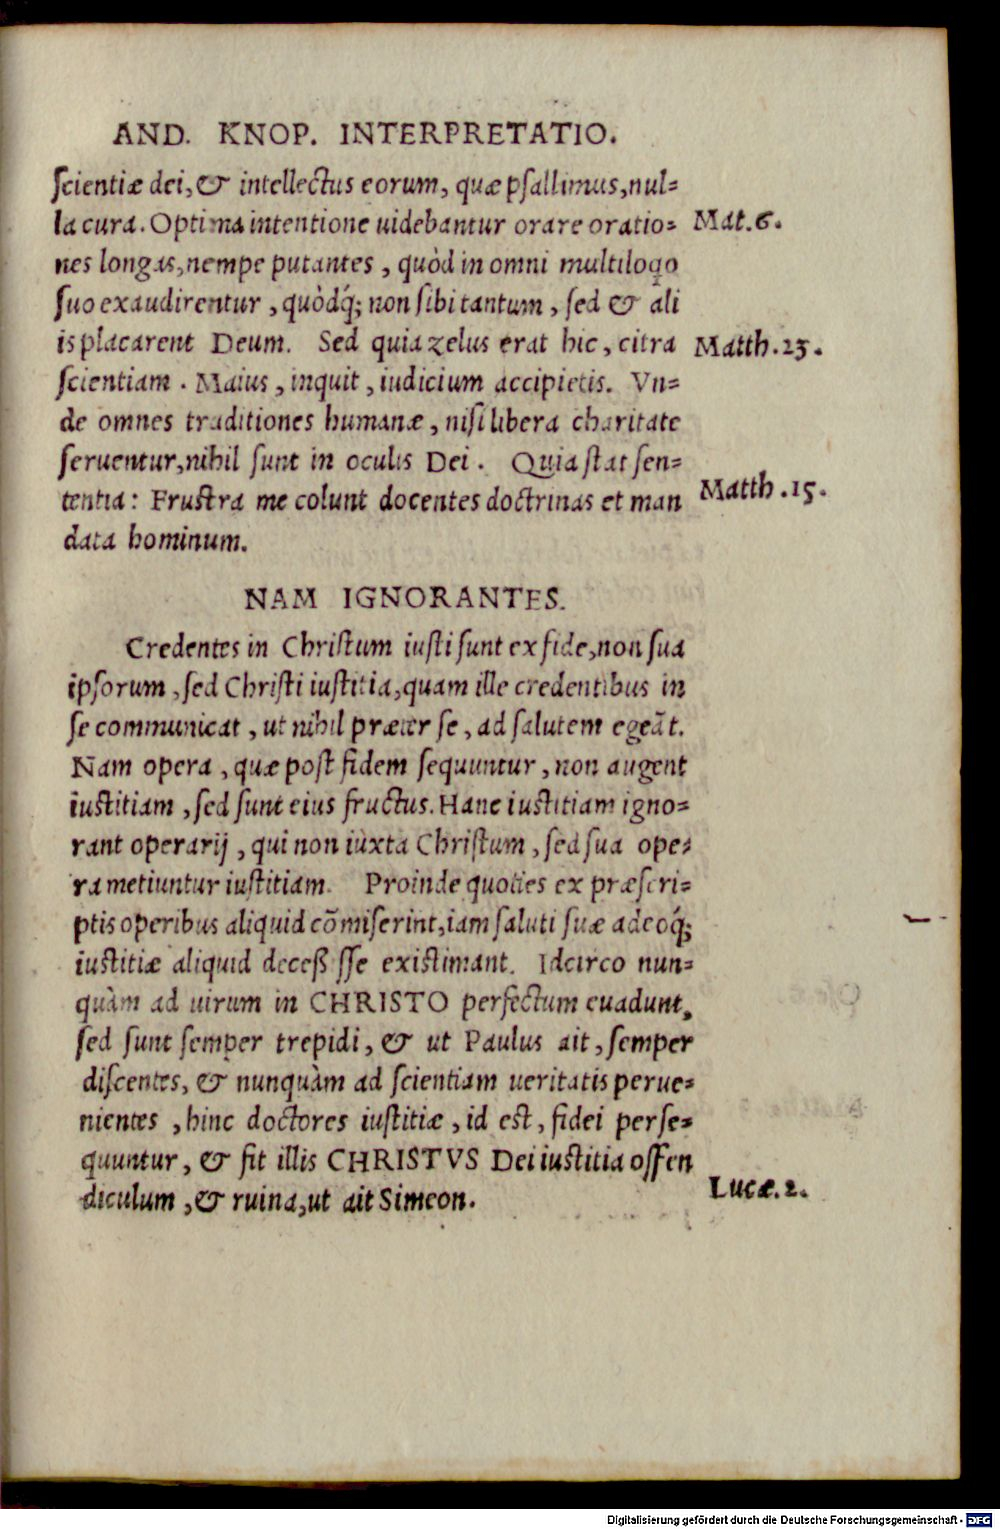 AND. KNOP. INTERPRETATIO.
ſcientiæ dei, & intellectus eorum, quæ pſallimus, nul=
la cura. Optima intentione uidebantur orare oratio=
Mat. 6.
nes longas, nempe putantes, quòd in omni multiloqo
ſuo exaudirentur, quòdq́; non ſibi tantum, ſed & ali
is placarent Deum. Sed quia zelus erat hic, citra
Matth. 23.
ſcientiam. Maius, inquit, iudicium accipietis. Vn=
de omnes traditiones humanæ, niſi libera charitate
ſeruentur, nihil ſunt in oculis Dei. Quia ſtat ſen=
tentia: Fruſtra me colunt docentes doctrinas et man
Matth. 15.
data hominum.
NAM IGNORANTES.
Credentes in Chriſtum iuſti ſunt ex fide, non ſua
ipſorum, ſed Chriſti iuſtitia, quam ille credentibus in
ſe communicat, ut nihil præter ſe, ad ſalutem egeāt.
Nam opera, quæ poſt fidem ſequuntur, non augent
iuſtitiam, ſed ſunt eius fructus. Hanc iuſtitiam igno=
rant operarij, qui non iuxta Chriſtum, ſed ſua ope=
ra metiuntur iuſtitiam. Proinde quoties ex præſcri=
ptis operibus aliquid cōmiſerint, iam ſaluti ſuæ adeoq́;
iuſtitiæ aliquid deceß ſſe exiſtimant. Idcirco nun=
quàm ad uirum in CHRISTO perfectum euadunt,
ſed ſunt ſemper trepidi, & ut Paulus ait, ſemper
diſcentes, & nunquàm ad ſcientiam ueritatis perue=
nientes, hinc doctores iuſtitiæ, id eſt, fidei perſe=
quuntur, & fit illis CHRISTVS Dei iuſtitia offen
diculum, & ruina, ut ait Simeon.
Lucæ. 2.
Digitalisierung gefördert durch die Deutsche Forschungsgemeinschaft - DFG